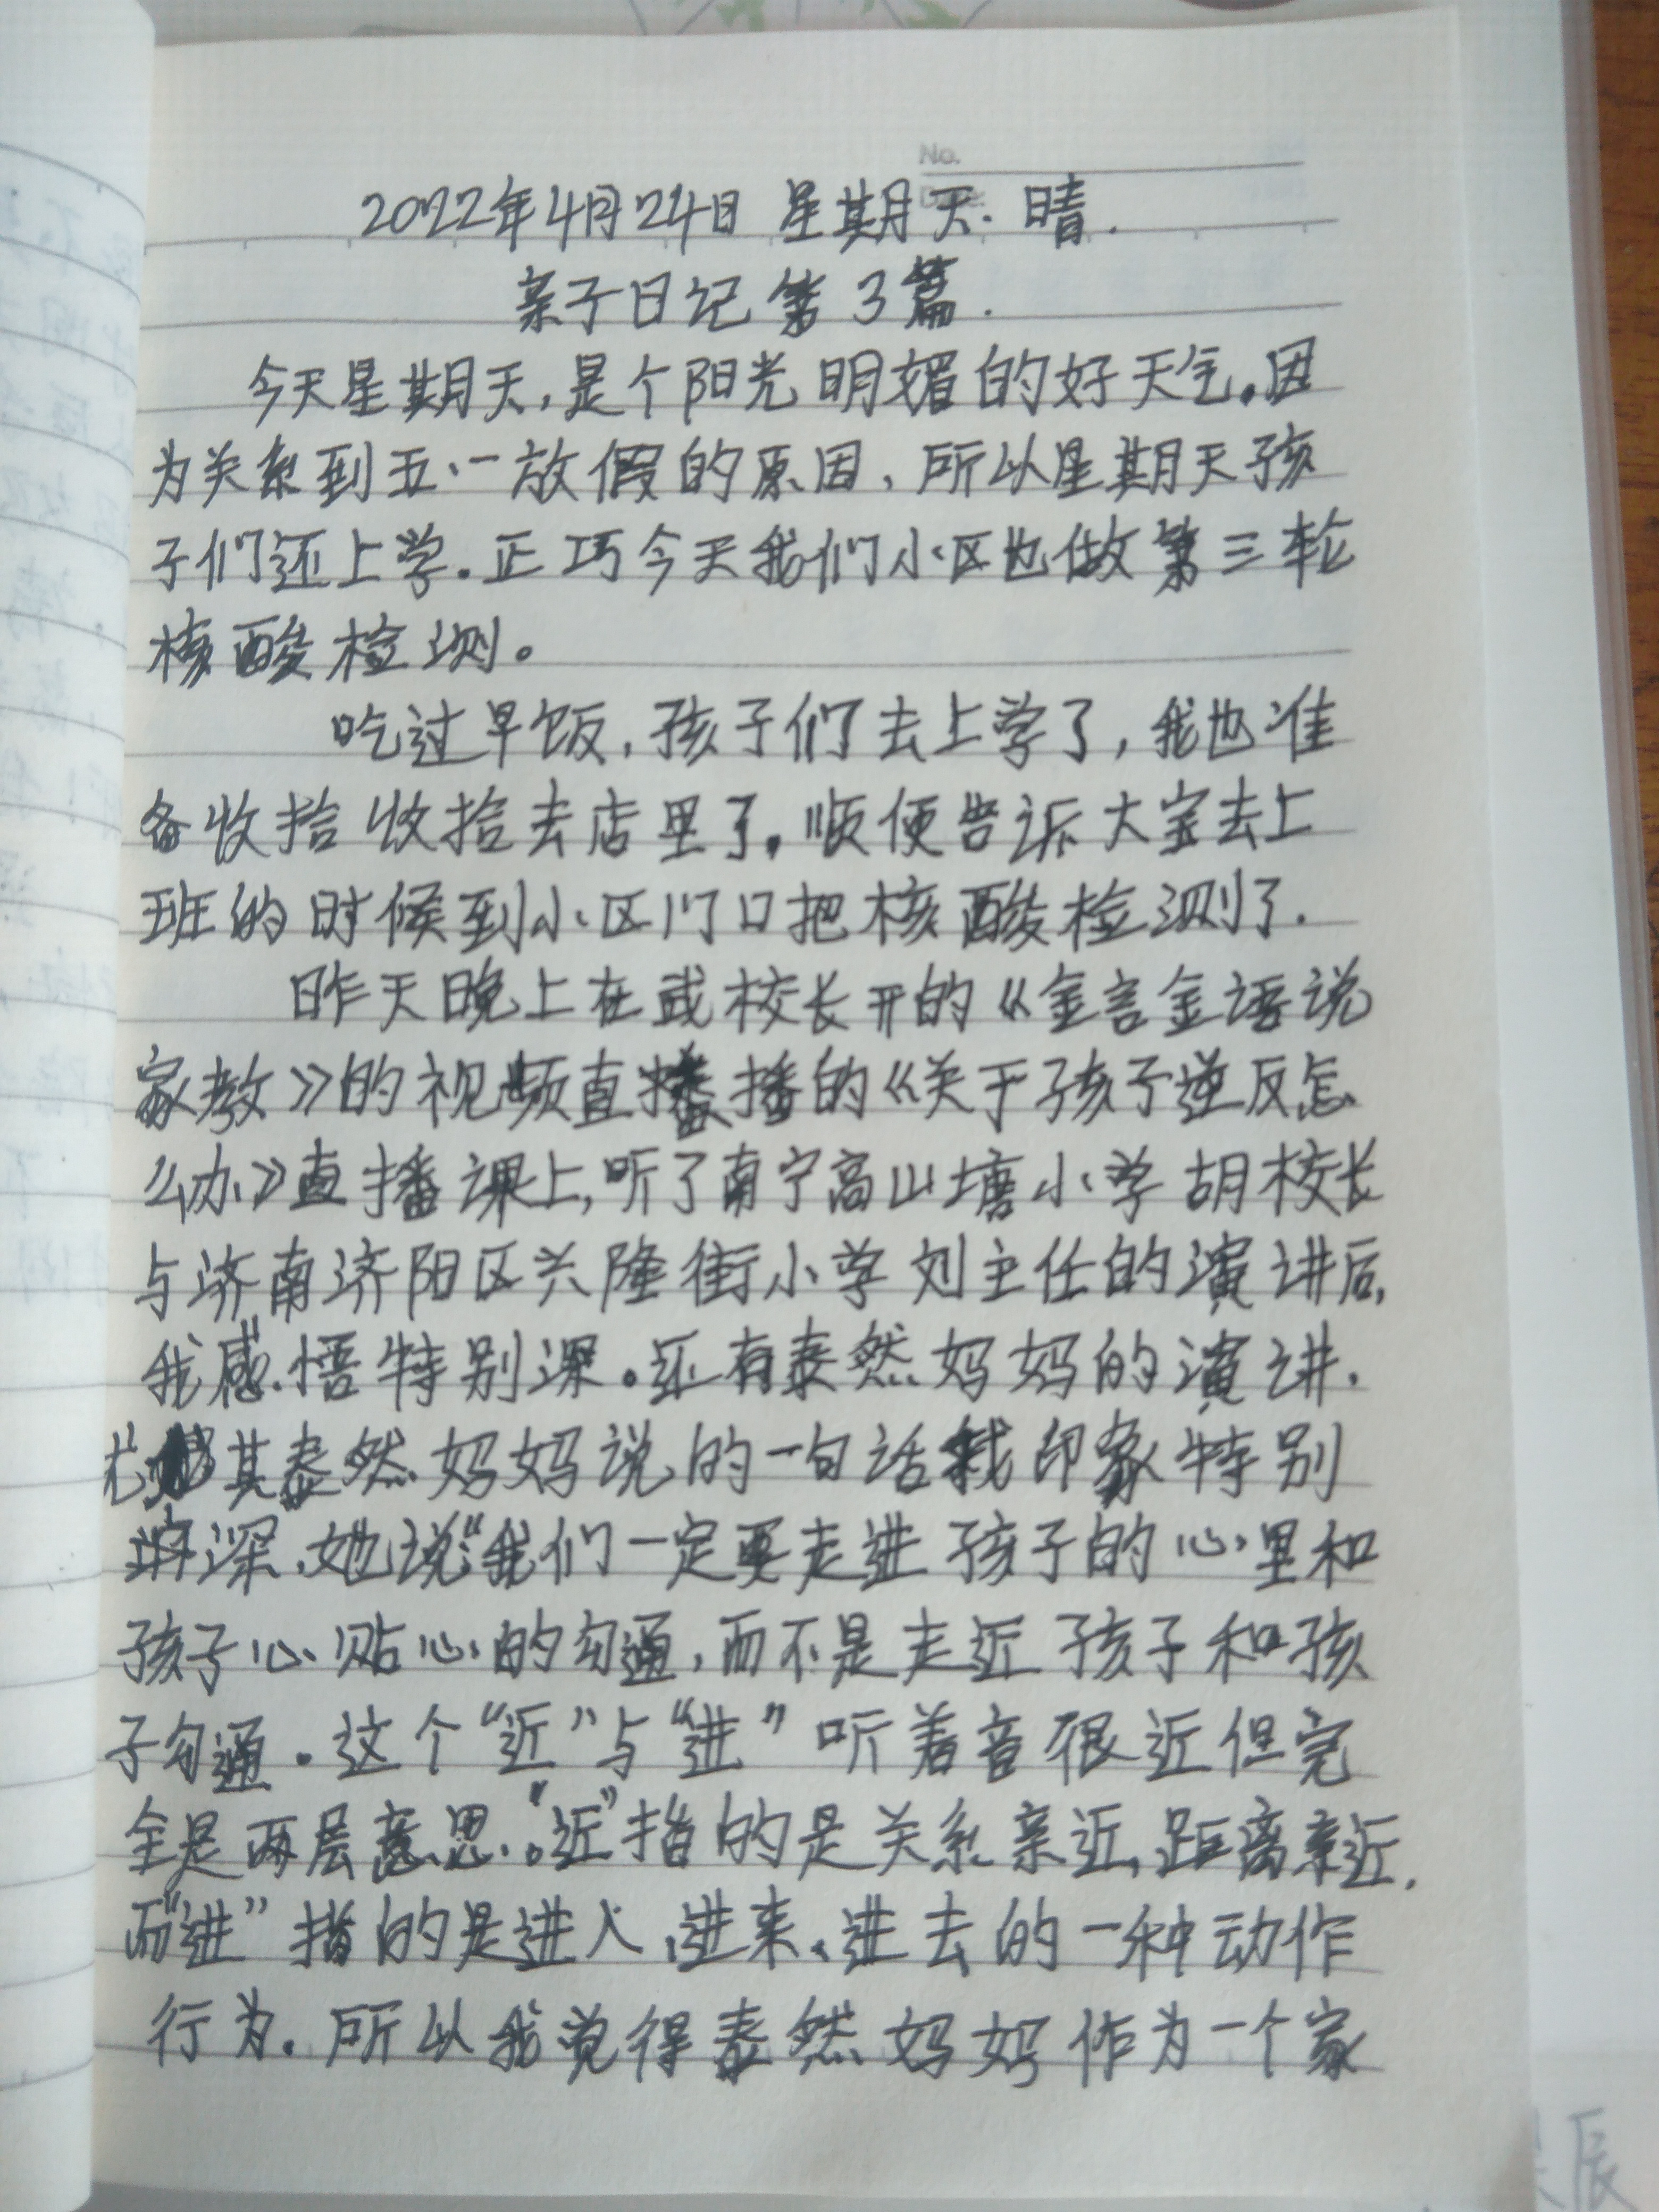 No.
Date.
2022年4月24日 星期天. 晴.
亲子日记 第3篇.
今天星期天,是个阳光明媚的好天气。因
为关系到五·一放假的原因、所以星期天孩
子们还上学。正巧今天我们小区也做第三轮
核酸检测。
吃过早饭,孩子们去上学了,我也准
备收拾收拾去店里了。顺便告诉大宝去上
班的时候到小区门口把核酸检测了.
昨天晚上在臧校长开的《金言金语说
家教》的视频直播播的《关于孩子逆反怎
么办》直播课上,听了南宁高山塘小学胡校长
与济南济阳区兴隆街小学刘主任的演讲后,
我感悟特别深。还有泰然妈妈的演讲.
尤其泰然妈妈说的一句话我印象特别
深、她说"我们一定要走进孩子的心里和
孩子心贴心的勾通,而不是走近孩子和孩
子勾通。这个"近"与"进"听着音很近但完
全是两层意思。"近"指的是关系亲近、距离亲近.
而"进"指的是进入、进来、进去的一种动作
行为。所以我觉得泰然妈妈作为一个家
辰